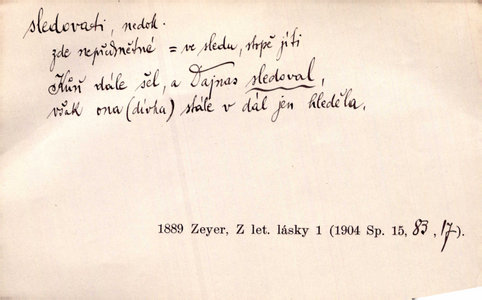 sledovati, nedok.
zde nepředmětné = ve sledu, stopě jíti
Kůň dále šel, a Dajnas sledoval,
však ona (dívka) stále v dál jen hleděla.
1889 Zeyer, Z let. lásky 1 (1904 Sp. 15, 83, 17).